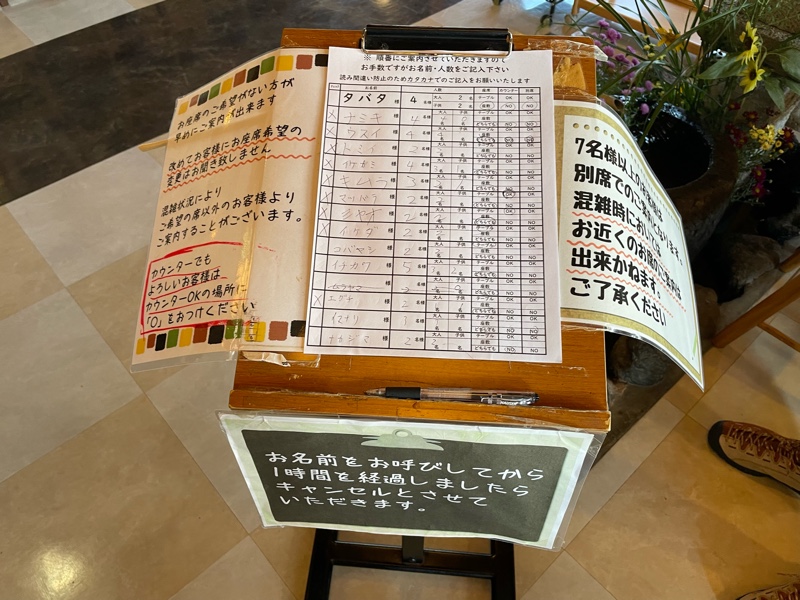 ※ 順番にご案内させていただきますので
お手数ですがお名前・人数をご記入下さい
読み間違い防止のためカタカナでのご記入をお願いいたします
お名前 人数 座席 カウンター 相席
タバタ 様 4 名様 大人 2 名 子供 2 名 テーブル 座敷 どちらでも OK NO OK NO
ナミキ 様 4 名様
ウスイ 様 4 名様
トミイ 様 2 名様
様 4 名様
キムラ 様 3 名様
様 2 名様
様 2 名様
イケダ 様 2 名様
コバヤシ 様 2 名様
イチカワ 様 5 名様
様 2 名様
様 2 名様
イマナリ 様 名様
ナカジマ 様 2 名様
お座席のご希望がない方が
早めにご案内が出来ます
改めてお客様にお座席希望の
変更はお聞き致しません
混雑状況により
ご希望の席以外のお客様より
ご案内することがございます。
カウンターでも
よろしいお客様は、
カウンターOKの場所に
「O」をおつけください
7名様以上のお客様は
別席でのご案内となります。
混雑時においては
お近くのお席のご案内は
出来かねます。
ご了承ください
お名前をお呼びしてから
1時間を経過しましたら
キャンセルとさせて
いただきます。